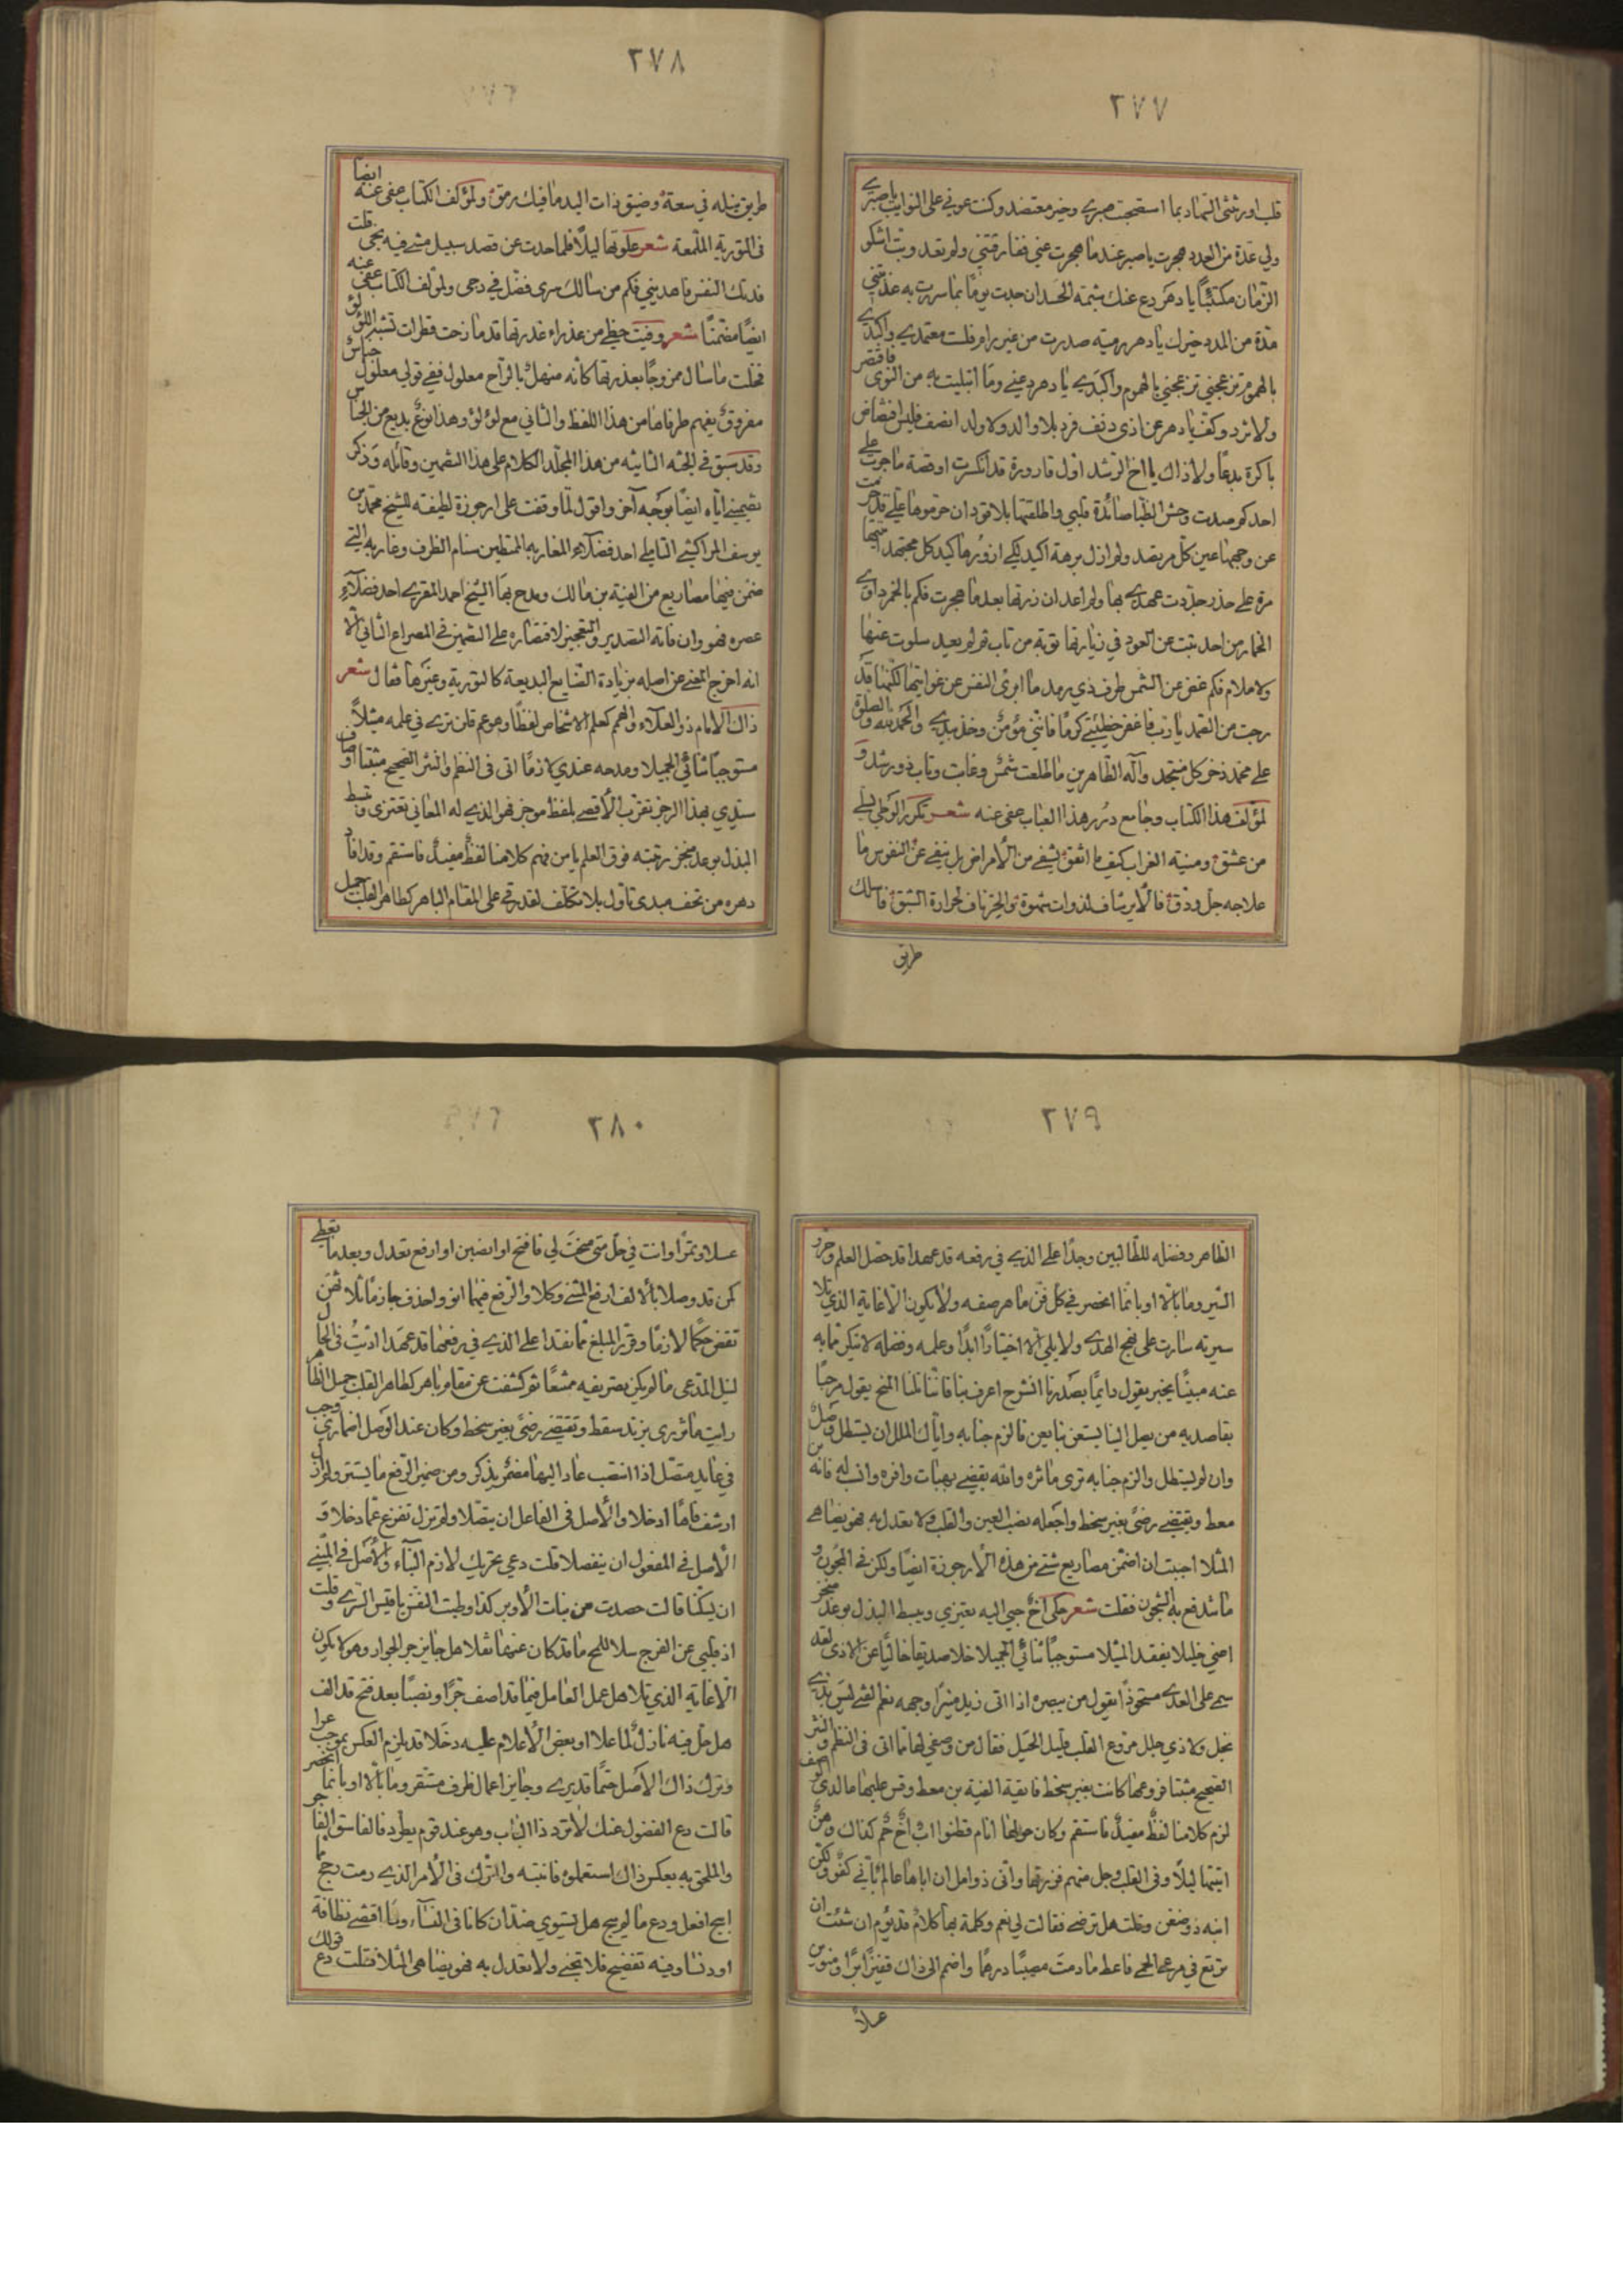 ٢٧٧
قلب اورثنى التماد بما استصحبت صبري وخير معتضد وكنت عوني على النوايب يا صبري
ولي عدة من العدد هجرت يا صبر عندما هجرت عني ففارقتني ولم تعد وبت اشكو
الزمان مكتئبًا يا دهر دع عنك شتمة الحسدان جدت يومًا بما سررت به عذبتني
مدة من المدد خيرك يا دهر رمية صدرت من غير رام وقلت معتمدي واكبدي
بالهموم تزعجني تزعجني بالهموم واكبدي يا دهر دعني وما ابتليت به من النوى فاقتصر
ولا تزد وكف يا دهر عن اذى دنف فرد بلا والد ولا ولد انصف فليس افتضاض
باكرة بدعًا ولا ذاك يا اخا الرشد اول قارورة قد انكسرت او قصة ما جرت على
احد كم صدت وحش الظبا صائدة قلبي واطلقتها بلا قود ان حرموها علي قد
عن وجهها عين كل مرتصد ولم ازل برهة اكيد لكي ازورها كيد كل مجتهد
مرة على حذر جددت عهدي بها ولم اعد ان زرتها بعدما هجرت فكم بالخمر داوي
الخمار من احد تبت عن العود في زيارتها توبة من تاب ثم لم يعد سلوت عنها
ولا ملام فكم غض عن الشمس طرف ذي رمد ما ابرئ النفس عن غوايتها لكنها قد
رجت من الصمد يا رب فاغفر خطيئتي كرمًا فانني مؤمن وخذ بيدي والحمد لله والصلوة
على محمد ذخر كل منتجد وآله الطاهرين ما طلعت شمس وغابت وتاب ذو رشد و
لمؤلف هذا الكتاب وجامع درر هذا العباب عفى عنه شعر تكرر الوطي
من عشق ومنية الغراب كيف ما اتفق يشفي من الامراض بل ينفي عن النفوس ما
علاجه جل ودق فالاير شاف لذوات شهوة والحر ناف لحرارة الشبق فاسلك
طريق
٢٧٨
طريق نيله في سعة وضيق ذات اليد ما فيك رمق ولمؤلف الكتاب عفى عنه ايضا
في التورية الملمعة شعر علوتها ليلًا فلما حدت عن قصد سبيل مشي فيه بخي قلت
فدتك النفس فاهديني فكم من سالك سرى فضل في دجى ولمؤلف الكتاب عفى عنه
ايضًا مضمنًا شعر وفيت حظي من عذراء غدرتها قد مازحت قطرات تشبه اللؤلؤ
فخلت ما سال ممزوجًا بعذرتها كانه منهل بالراح معلول ففي قولي معلول جناس
مفروق يفهم طرفاها من هذا اللفظ والثاني مع لؤلؤ وهذا نوع بديع من الجناس
وقد سبق في الجثة الثانية من هذا المجلد الكلام على هذا التضمين وقائله وذكر
تضميني اياه ايضًا بوجه آخر واقول لما وقفت على ارجوزة لطيفة للشيخ محمد بن
يوسف المراكشي التاملي احد فضلاء المغاربة الممتطين سنام الظرف وغاربه التي
ضمن فيها مصاريع من الفية بن مالك ومدح بها الشيخ احمد المقري احد فضلاء
عصره فهو وان فاته التصدير والتعجيز لاقتصاره على التضمين في المصراع الثاني الا
انه اخرج المعنى عن اصله بزيادة الصنايع البديعة كالتورية وغيرها فقال شعر
ذاك الامام ذو العلاء والهمم كعلم الاشخاص لفظًا وهو عم فلن ترى في علمه مثيلًا
مستوجبًا ثنائي الجميلا ومدحه عندي لازمًا اتى في النظم والنثر الصحيح مثبتا اوصاف
سيدي بهذا الرجز تقرب الاقصى بلفظ موجز فهو الذي له المعاني تعتزى وتبسط
البذل بوعد منجز رتبته فوق العلم يا من فهم كلامنا لفظ مفيد فاستقم وقد افاد
دهره من تحف مبدى تاول بلا تكلف لقد رقى على المقام الباهر كطاهر القلب جميل
٢٧٩
الظاهر وفضله للطالبين وجدا على الذي في رفعه قد عهدا قد حصل العلم وحرر
السير وما بالا او بانما انحصر في كل فن ماهر صفه ولا يكون الا غاية الذي تلا
سيرته سارت على نهج الهدى ولا يلي الا اختيارًا ابدًا وعلمه وفضله لا ينكر مما به
عنه مبينًا يخبر يقول دايمًا بصدرنا انشرح اعرف بنا فاننا نلنا المنح يقول مرحبًا
بقاصديه من يصل الينا يستعن بنا يعن فالزم جنابه واياك الملل ان يستطل وصل
وان لم يستطل والزم جنابه ترى مآثره والله يقضي بهبات وافره وانسب له فانه
معط ويقتضي رضى بغير سخط واجعله نصب العين والقلب ولا تعدل به فهو يضاهي
المثلا احببت ان اضمن مصاريع شتى من هذه الارجوزة ايضًا ولكن في المجون و
ما شدفع به الشجون فقلت شعر حكى اخ حبي اليه يعتزي ويبسط البذل بوعد منجز
اضني خليلا يفقد المثيلا مستوجبًا ثنائي الجميلا خلا صديقا خاليًا عن الاذى لفقه
سمي على العدي مستحوذًا يقول من يبصره اذا اتى زيد منيرًا وجهه نعم الفتى ليس بذي
بخل ولا ذي جلل مروع القلب قليل الحيل فقال من وصفي لها مما اتى في النظم والنثر
الصحيح مثبتا فروعها كانت بغير سخط فايقة الفية بن معط وقس عليها ما لدي الوصف
لزم كلامنا لفظ مفيد فاستقم وكان حولها انام قطنوا اب اخ حم كذاك وهن
اتيتها ليلًا وفي القلب وجل منهم فزرتها واني ذو امل ان اباها عالم باني كفؤ ولكن
ابنه ذو ضغن وقلت هل ترضي فقالت لي نعم وكلمة بها كلام قد يؤم ان شئت ان
ترتع في مرعى الحمى فاعط ما دمت مصيبًا درهمًا واضمم الى ذاك قفيزًا برًا ومنوين
عسلًا
٢٨٠
عسلا وتمرًا وانت في حل متى منحت لي فافتح او انصبن او ارفع تعدل وبعد ما تعطي
كن قد وصلا بالالف ارفع المثنى وكلا والرفع فيهما انو واحذف جازمًا ثلاثهن
تقض حكمًا لازمًا وقرر المبلغ مما نقدا على الذي في رفعها قد عهدا اتيت في الحال
لنيل المدعى ما لم يكن بتصريفه مشبعًا ثم كشفت عن مقام باهر كطاهر القلب جميل الظاهر
رايت ما ثورى بزند سقط وتقتضي رضى بغير سخط وكان عند الوصل اضماري وجب
في عايد متصل اذا انتصب عاد اليها مضمر يذكر ومن ضمير الرفع ما يستتر ولم ازل
ارشف فاها ادخلا والاصل في الفاعل ان يتصلا ولم تزل تفزع عما دخلا و
الاصل في المفعول ان ينفصلا قلت دعي تحريك لازم البناء والاصل في المبني
ان يسكنا قالت حصدت من بنات الاوبر كذا وطبت النفس يا قيس السري وقلت
اذ قلبي عن الفرج سلا للمح ما قد كان عنها نقلا هل جايز جر الجوار وهو لا يكون
الا غاية الذي تلا هل عمل العامل فيما قد اصف جرًا ونصبًا بعد فتح قد الف
هل حل فيه نازل لما علا او بعض الاعلام عليه دخلا قد يلزم العكس بموجب عرا
وترك ذاك الاصل حتمًا قد يرى وجايز اعمال ظرف مستقر وما بالا او بانما انحصر
قالت دع الفضول عنك لا ترد ذا الباب وهو عند قوم يطرد فالفاسق الفاجر
والملحق به بعكس ذاك استعملوه فانتبه والترك في الامر الذي رمت رجح
ابيح افعل ودع ما لم يبح هل يستوي ضدان كانا في الثناء وما اقتضى نظافة
او دنسا وفيه تفضيح فلا تجني ولا تعدل به فهو يضاهي المثلا فقلت دع قولك